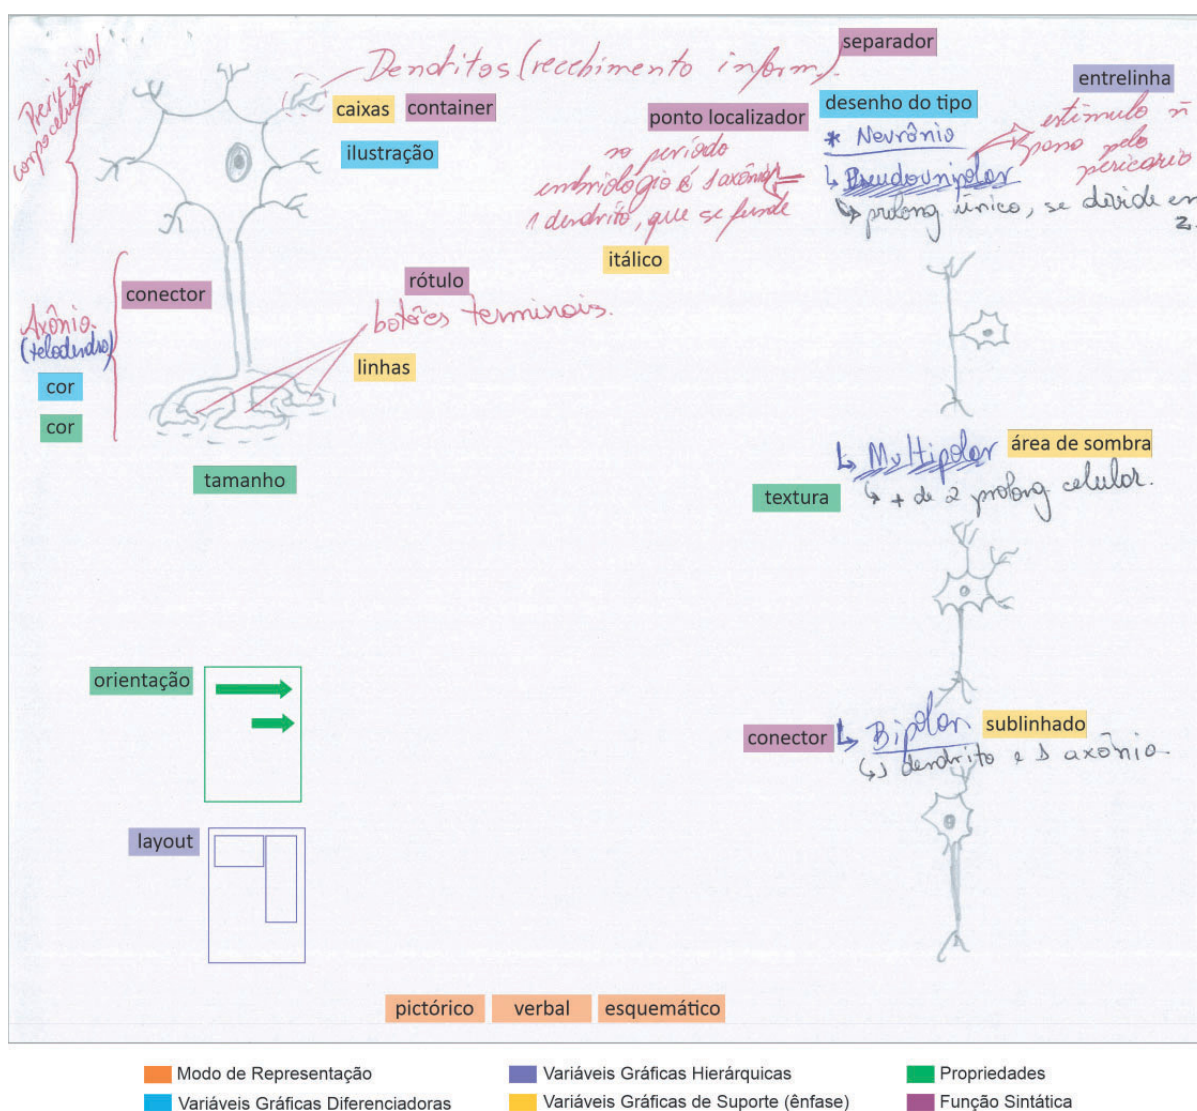 Pericário/
corpo celular
Dendritos (recebimento inform.)
separador
caixas
container
ilustração
ponto localizador
desenho do tipo
entrelinha
* Nevrônio
estímulo ñ
passa pelo
pericario
no período
embriológio é 1 axônio
1 dendrito, que se funde
↳ Pseudounipolar
↳ prolong único, se divide em
2.
itálico
conector
rótulo
botões terminais.
Axônio.
(telodendro)
linhas
cor
cor
tamanho
↳ Multipolar
área de sombra
textura
↳ + de 2 prolong celular.
orientação
conector
↳ Bipolar
sublinhado
↳ 1 dendrito e 1 axônio.
layout
pictórico
verbal
esquemático
Modo de Representação
Variáveis Gráficas Hierárquicas
Propriedades
Variáveis Gráficas Diferenciadoras
Variáveis Gráficas de Suporte (ênfase)
Função Sintática